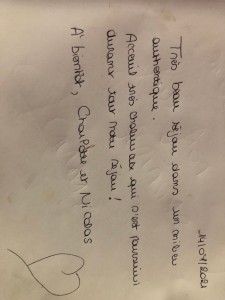 14/04/2021
Très beau séjour dans un milieu
authentique.
Accueil très chaleureux qui s'est poursuivi
durant tout notre séjour !
A bientôt, Charlotte et Nicolas